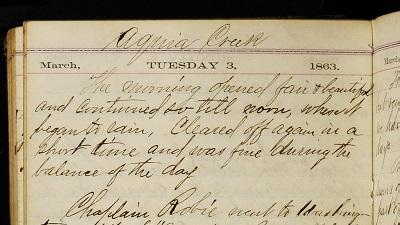 Aquia Creek
March, TUESDAY 3, 1863.
The morning opened fair & beautiful
and continued so till noon, when it
began to rain, Cleared off again in a
short time and was fine during the
balance of the day
Chaplain Robie went to Washing-
March